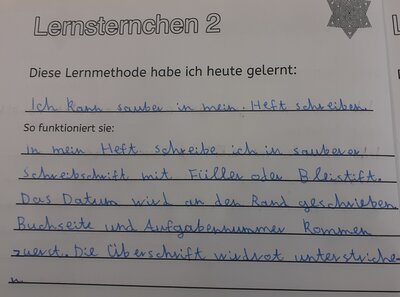 Lernsternchen 2
Diese Lernmethode habe ich heute gelernt:
Ich kann sauber in mein Heft schreiben.
So funktioniert sie:
In mein Heft schreibe ich in sauberer
Schreibschrift mit Füller oder Bleistift.
Das Datum wird an den Rand geschrieben.
Buchseite und Aufgabennummer kommen
zuerst. Die Überschrift wird rot unterstriche-
n